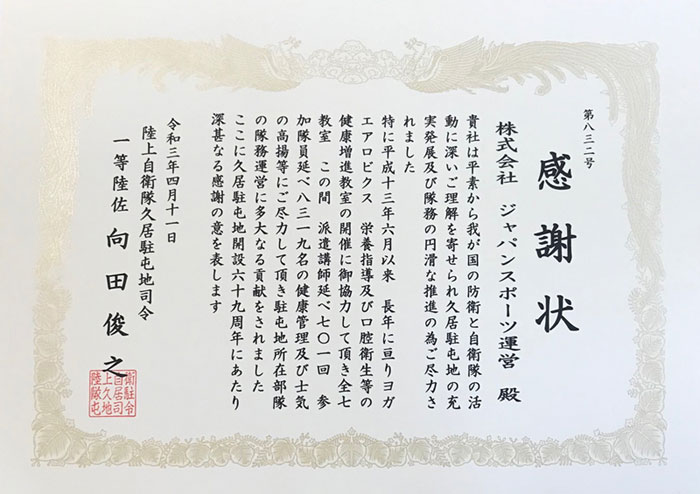 第八三二号
感謝状
株式会社 ジャパンスポーツ運営 殿
貴社は平素から我が国の防衛と自衛隊の活
動に深いご理解を寄せられ久居駐屯地の充
実発展及び隊務の円滑な推進の為ご尽力さ
れました
特に平成十三年六月以来 長年に亘りヨガ
エアロビクス 栄養指導及び口腔衛生等の
健康増進教室の開催に御協力して頂き全七
教室 この間 派遣講師延べ七〇一回 参
加隊員延べ八三一九名の健康管理及び士気
の高揚等にご尽力して頂き駐屯地所在部隊
の隊務運営に多大なる貢献をされました
ここに久居駐屯地開設六十九周年にあたり
深甚なる感謝の意を表します
令和三年四月十一日
陸上自衛隊久居駐屯地司令
一等陸佐 向田俊之
陸上自衛
隊久居駐
屯地司令